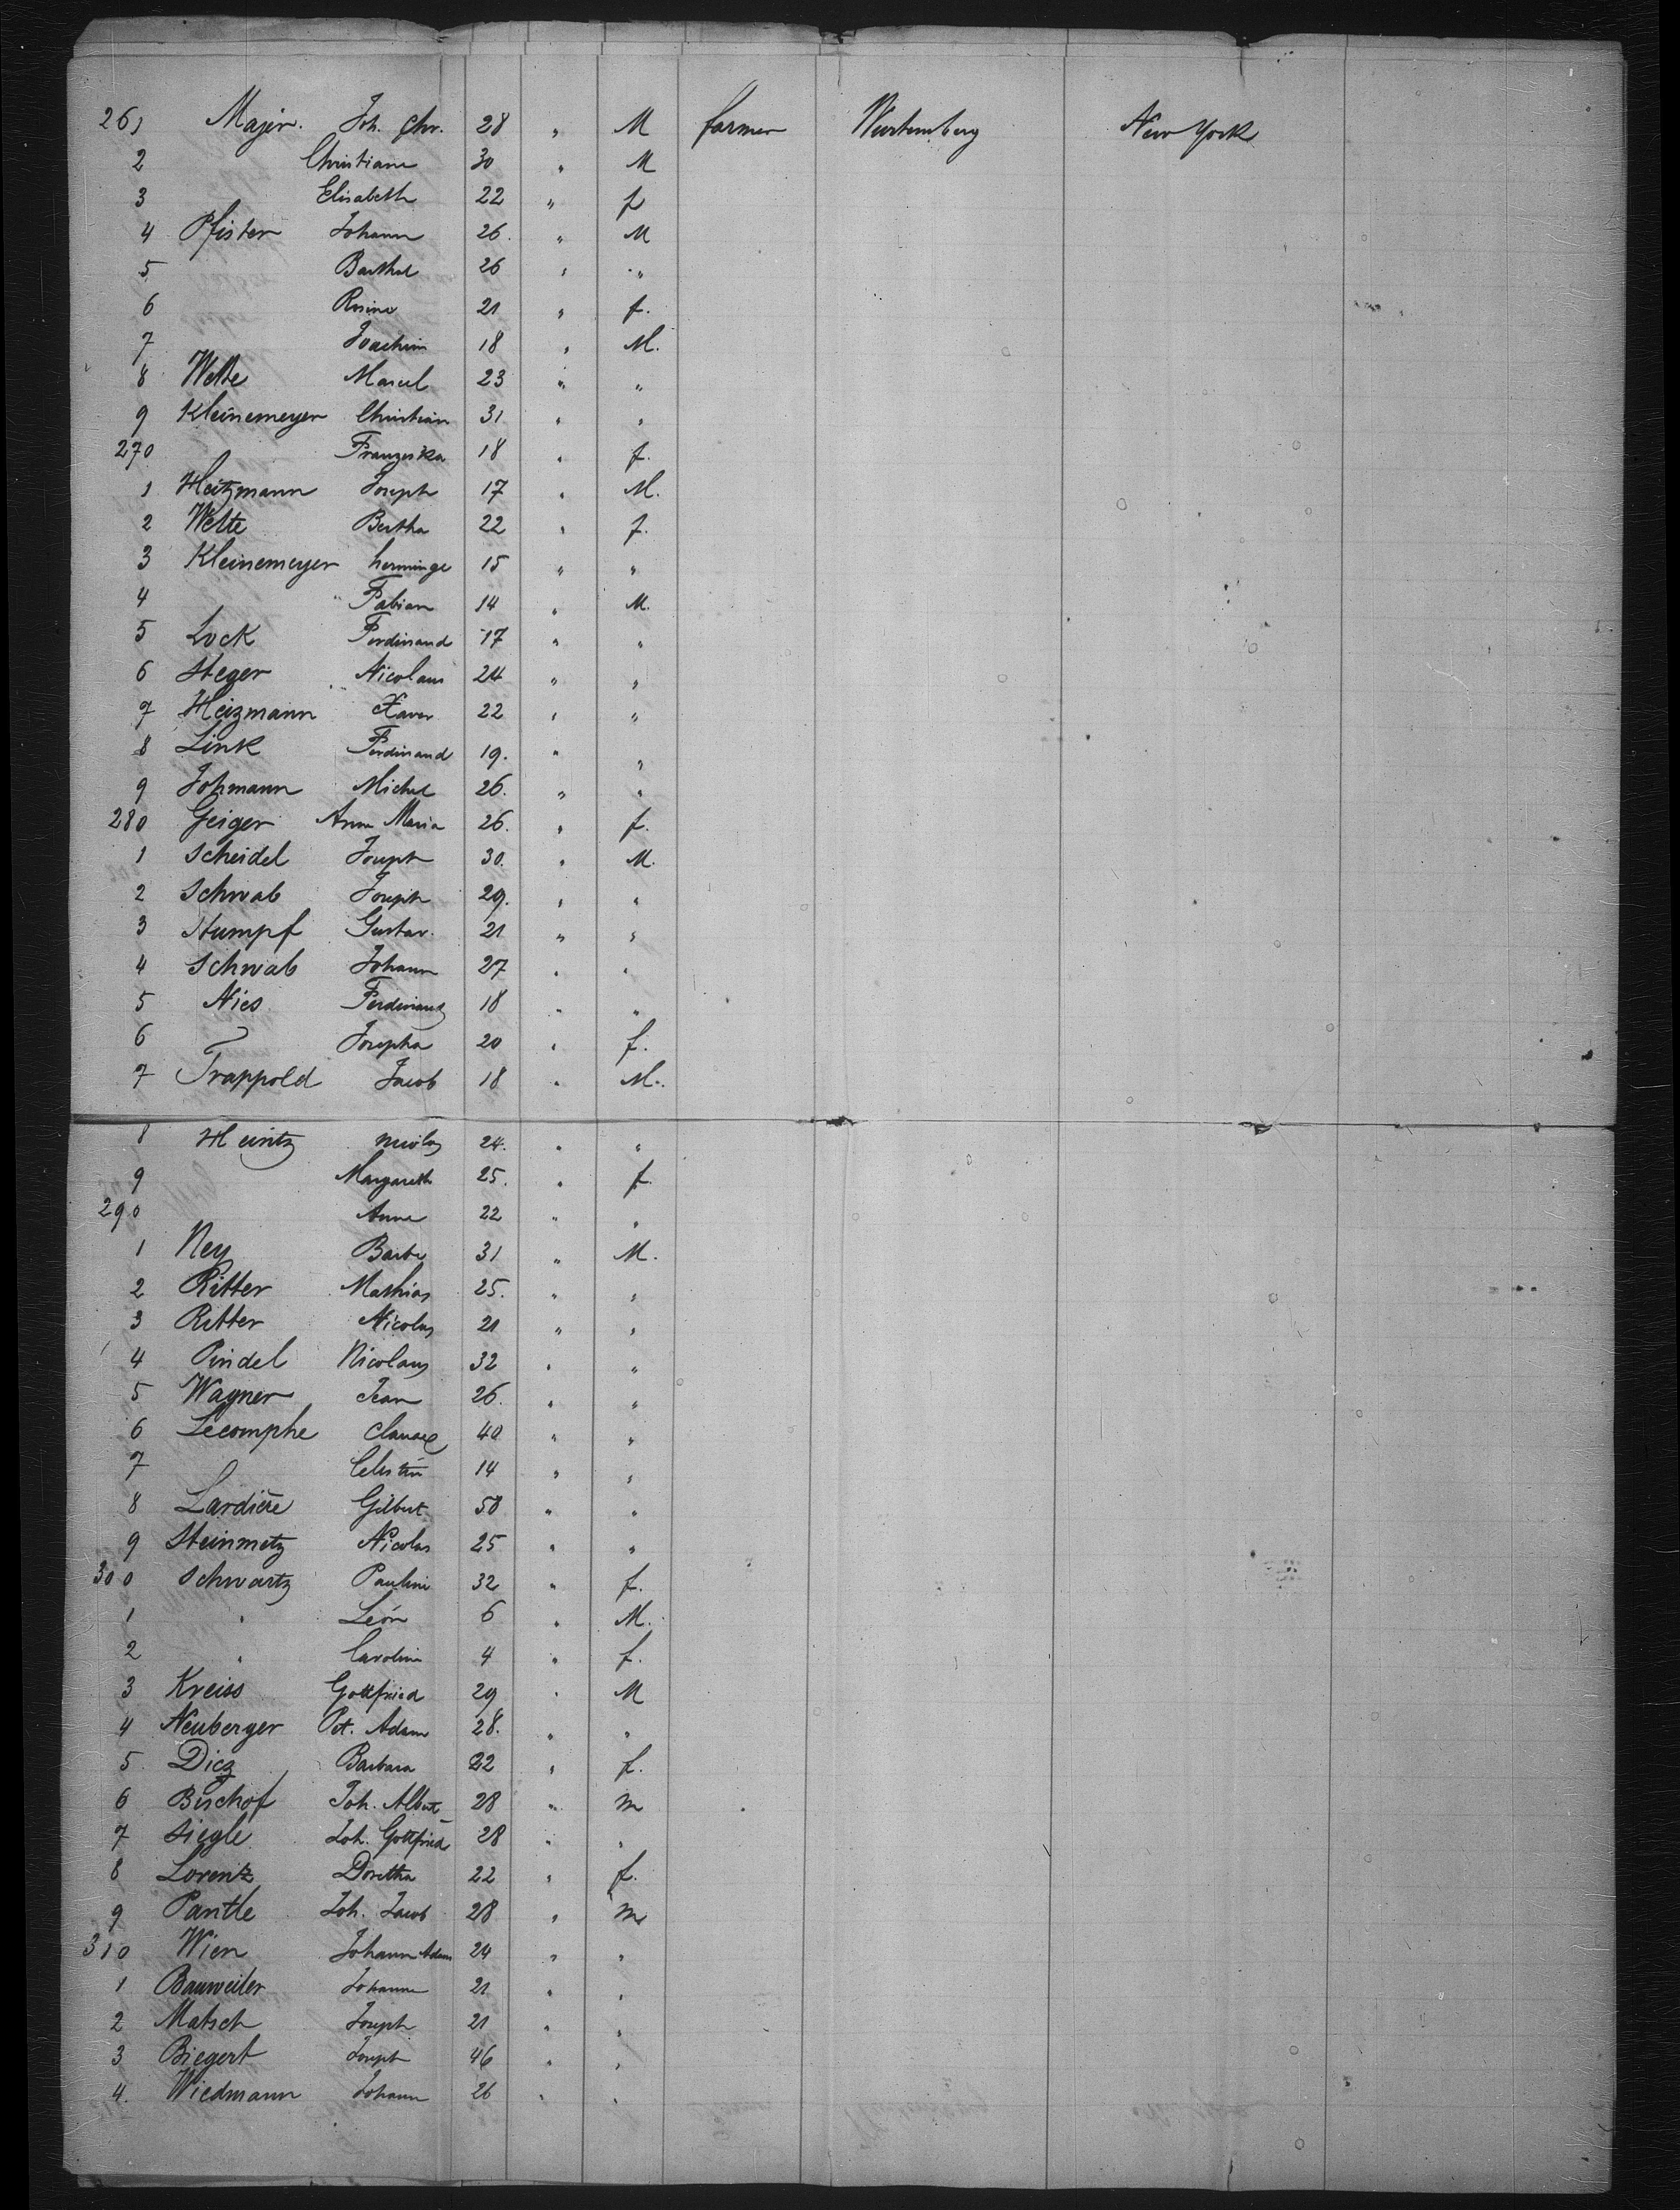 261 Majer. Joh. Chr. 28 " M farmer Wurtemberg New York
2 Christiane 30 " M
3 Elisabeth 22 " f
4 Pfister Johann 26. " M
5 Barthel 26 " "
6 Rosine 21 " f.
7 Joachim 18 " M.
8 Welte Marcel 23 " "
9 Kleinemeyer Christian 31 " "
270 Franziska 18 " f.
1 Heitzmann Joseph 17 " M.
2 Welte Bertha 22 " f.
3 Kleinemeyer herminge 15 " "
4 " Fabian 14 " M.
5 Lock Ferdinand 17 " "
6 Steger Nicolaus 24 " "
7 Heizmann Xaver 22 " "
8 Link Ferdinand 19. " "
9 Johmann Michel 26. " "
280 Geiger Anna Maria 26. " f.
1 Scheidel Joseph 30. " M.
2 Schwab Joseph 29. " "
3 Stumpf Gustav. 21 " "
4 Schwab Johann 27 " "
5 Nies Ferdinand 18 " "
6 Josepha 20 " f.
7 Trappold Jacob 18 " M.
8 Heintz Nicolas 24. " "
9 Margareth 25. " f.
290 Anna 22 " "
1 Ney Barbe 31 " M.
2 Ritter Mathias 25. " "
3 Ritter Nicolas 21 " "
4 Pindel Nicolaus 32 " "
5 Wagner Jean 26. " "
6 Lecomphe Claude 40 " "
7 Celestin 14 " "
8 Lardiere Gilbert 50 " "
9 Steinmetz Nicolas 25 " "
300 Schwartz Pauline 32 " f.
1 " León 6 " M.
2 " Caroline 4 " f.
3 Kreiss Gottfried 29 " M
4 Neuberger Pet. Adam 28. " "
5 Diez Barbara 22 " f.
6 Bischof Joh. Albert 28 " m
7 Siegle Joh. Gottfried 28 " "
8 Lorenz Doretha 22 " f.
9 Pantle Joh. Jacob 28 " m
310 Wien Johann Adam 24 " "
1 Bauweiler Johanne 21 " "
2 Matsch Joseph 21 " "
3 Biegert Joseph 46 " "
4. Wiedmann Johann 26 " "